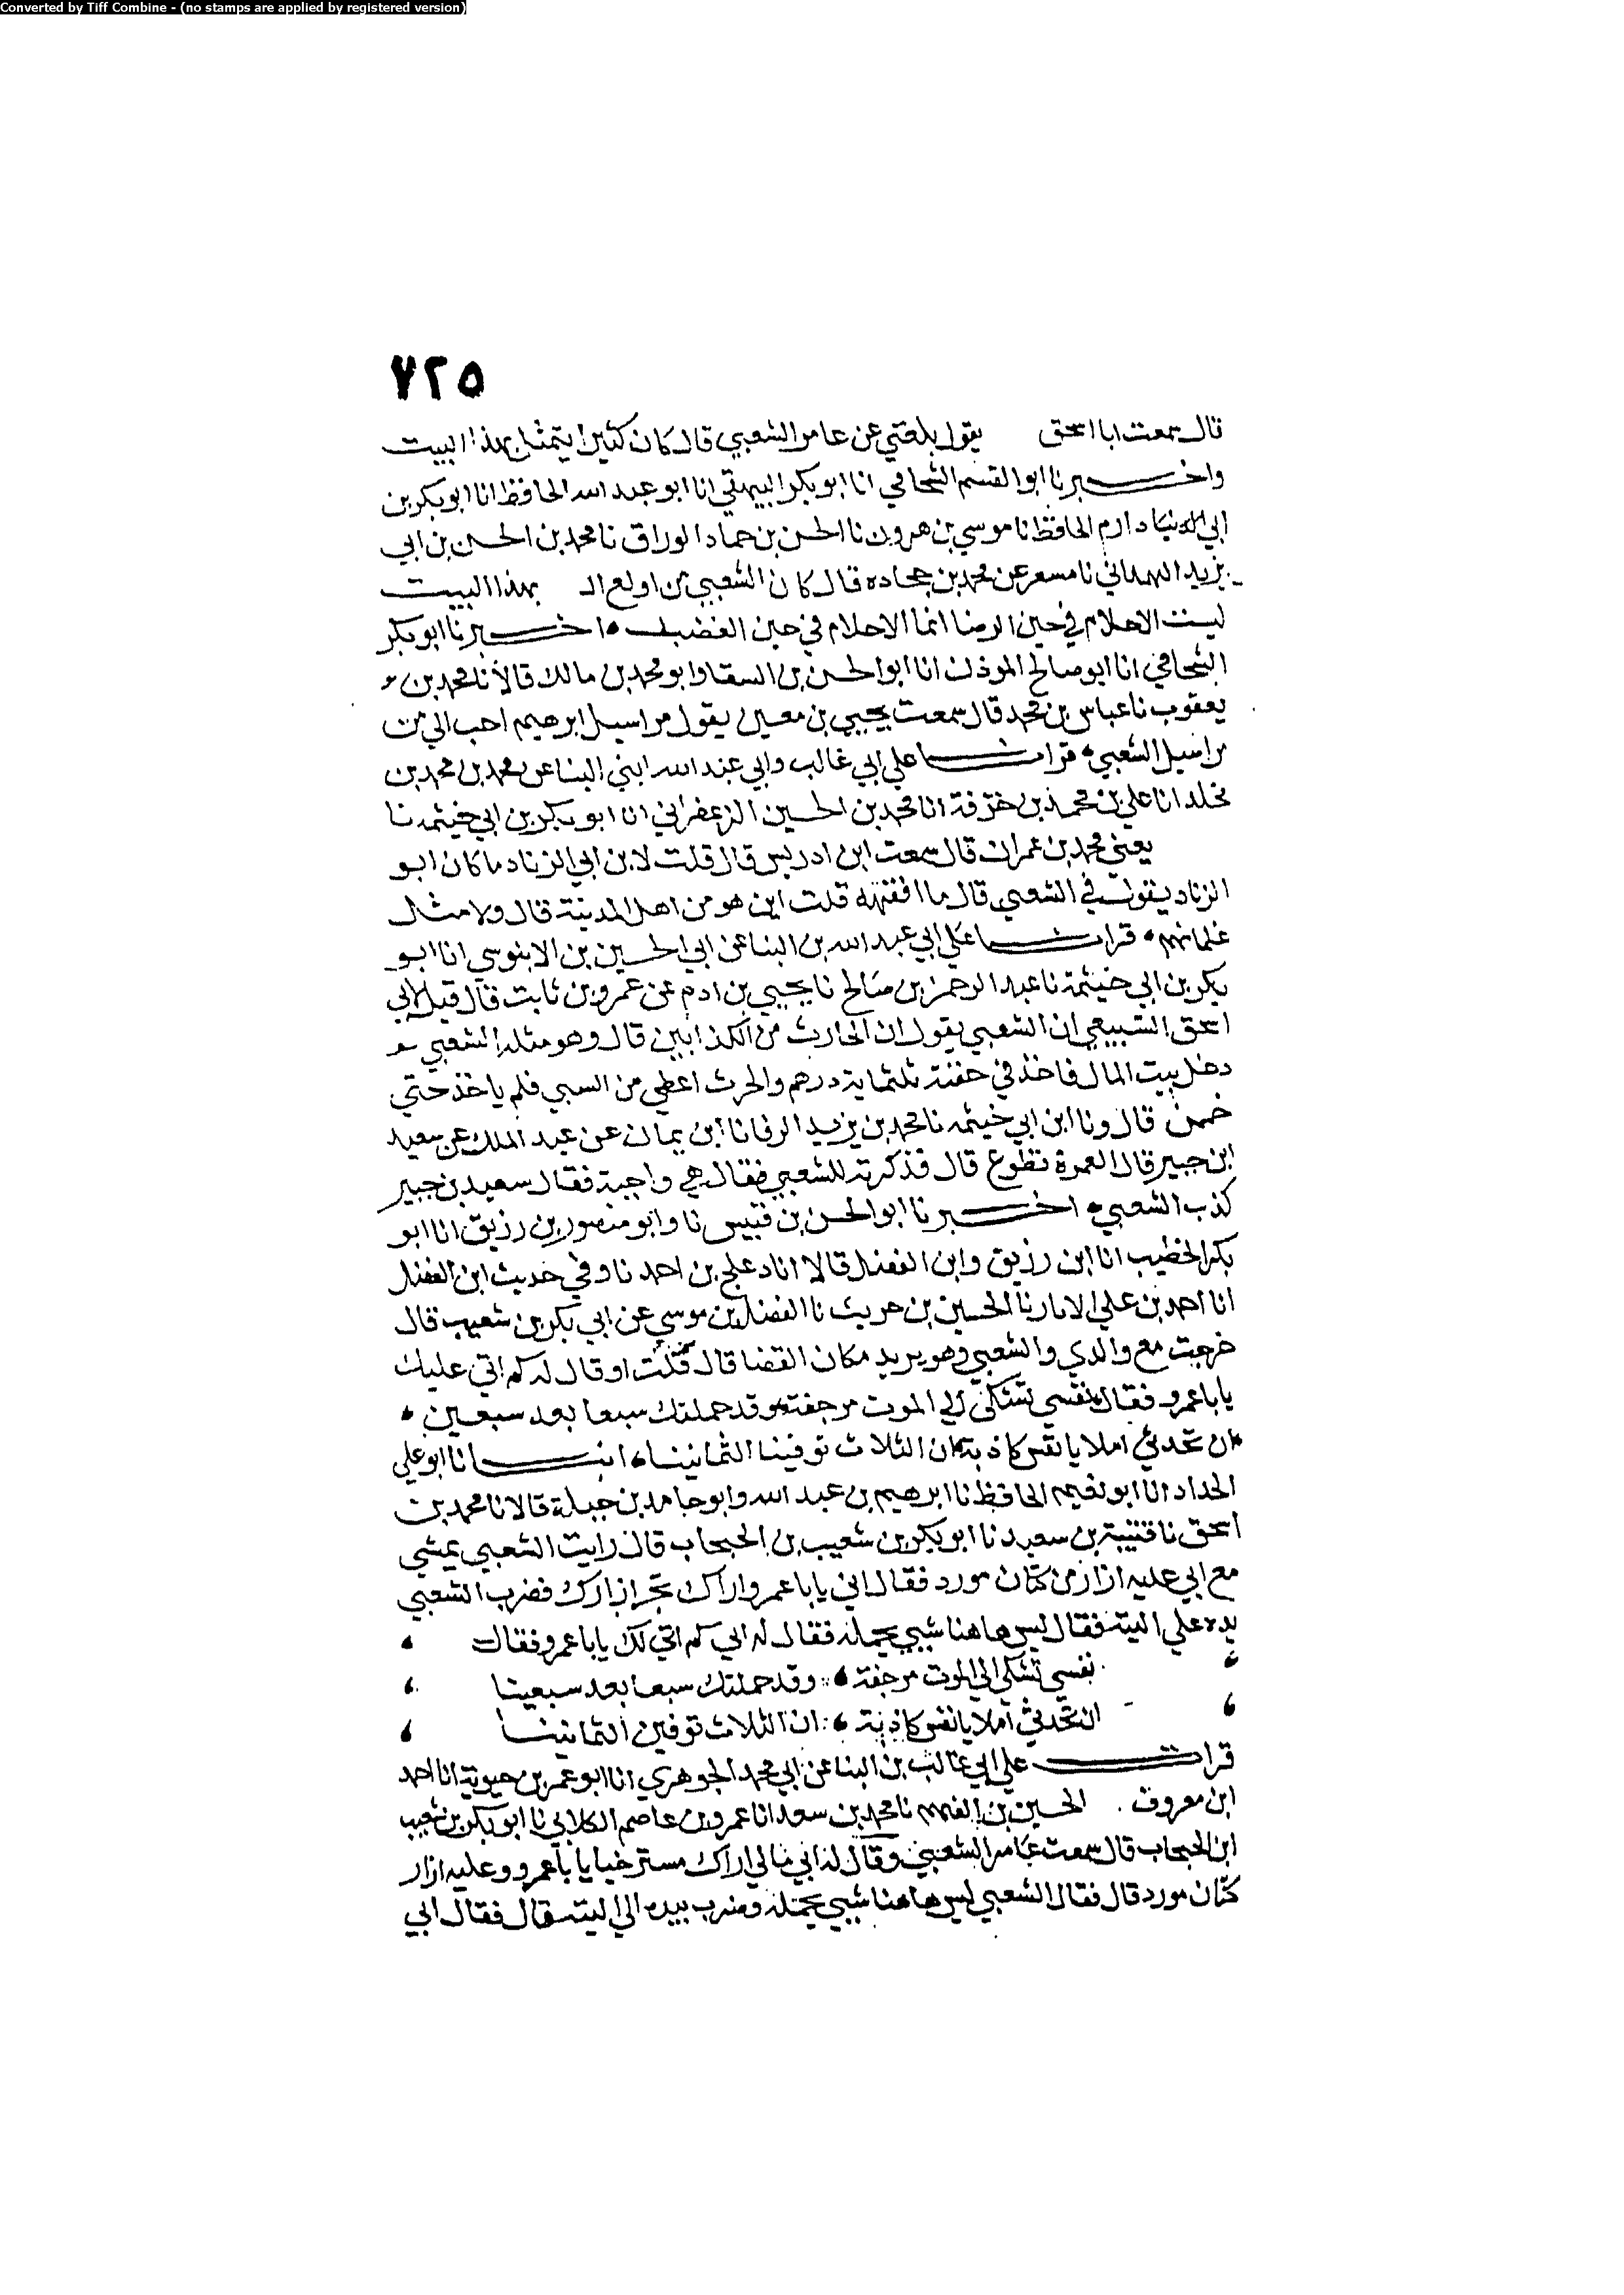 Converted by Tiff Combine - (no stamps are applied by registered version)
٧٢٥
قال سمعت ابا اسحق يقول بلغني عن عامر الشعبي قال كان كثيرا يتمثل بهذا البيت
واخبرنا ابو القسم الشحامي انا ابو بكر البيهقي انا ابو عبد الله الحافظ انا ابو بكر بن
ابي دارم الحافظ نا موسي بن هرون نا الحسن بن حماد الوراق نا محمد بن الحسن بن ابي
يزيد الهمداني نا مسعر عن محمد بن جحاده قال كان الشعبي من اولع الـ بهذا البيت
ليست الاحلام في حين الرضا انما الاحلام في حين الغضب اخبرنا ابو بكر
الشحامي انا ابو صالح الموذن انا ابو الحسن بن السقا وابو محمد بن مالك قالا نا محمد بن
يعقوب نا عباس بن محمد قال سمعت يحيي بن معين يقول مراسيل ابرهيم احب الي من
مراسيل الشعبي قرات علي ابي غالب وابي عبد الله ابني البنا عن محمد بن محمد بن
مخلد انا علي بن محمد بن خزفة انا محمد بن الحسين الزعفراني انا ابو بكر بن ابي خيثمه نا
يعني محمد بن عمران قال سمعت ابن ادريس قال قلت لابن ابي الزناد ما كان ابو
الزناد يقول في الشعبي قال ما افقهه قلت اين هو من اهل المدينة قال ولا مثل
غلمانهم قرات علي ابي عبد الله بن البنا عن ابي الحسين بن الابنوسي انا ابو
بكر بن ابي خيثمة نا عبد الرحمن بن صالح نا يحيي بن ادم عن عمرو بن ثابت قال قيل لابي
اسحق السبيعي ان الشعبي يقول ان الحارث من الكذابين قال وهو مثله الشعبي
دخل بيت المال فاخذ في حفنة ثلثماية درهم والحرث اعطي من السبي فلم ياخذ حتي
خمس قال ونا ابن ابي خيثمه نا محمد بن يزيد الرفا نا ابن يمان عن عبد الملك عن سعيد
ابن جبير قال العمرة تطوع قال فذكرته للشعبي فقال هي واجبة فقال سعيد بن جبير
كذب الشعبي اخبرنا ابو الحسن بن قبيس نا وابو منصور بن رزيق انا ابو
بكر الخطيب انا ابن رزيق وابن الفضل قالا انا دعلج بن احمد نا وفي حديث ابن الفضل
انا احمد بن علي الابار نا الحسين بن حريث نا الفضل بن موسي عن ابي بكر بن شعيب قال
خرجت مع والدي والشعبي وهو يريد مكان القضا قال فقلت او قال له كم اتي عليك
يابا عمرو فقال نفسي تشكي الي الموت مرجفة وقد حملتك سبعا بعد سبعين
ان تحدثي املا يا نفس كاذبة ان الثلاث توفينا الثمانينا انبانا ابو علي
الحداد انا ابو نعيم الحافظ نا ابرهيم بن عبد الله وابو حامد بن جبلة قالا نا محمد بن
اسحق نا قتيبة بن سعيد نا ابو بكر بن شعيب بن الحبحاب قال رايت الشعبي يمشي
مع ابي عليه ازار من كتان مورد فقال ابي يابا عمرو اراك تجر ازارك فضرب الشعبي
يده علي اليته فقال ليس هاهنا شيي يحمله فقال له ابي كم اتي لك يابا عمرو فقال
نفسي تشكي الي الموت مرجفة وقد حملتك سبعا بعد سبعينا
ان تحدثي املا يا نفس كاذبة ان الثلاث توفين الثمانينا
قرات علي ابي غالب بن البنا عن ابي محمد الجوهري انا ابو عمر بن حيوية انا احمد
ابن معروف الحسين بن الفهم نا محمد بن سعد انا عمرو بن عاصم الكلابي نا ابو بكر بن شعيب
ابن الحبحاب قال سمعت عامر الشعبي وقال له ابي مالي اراك مسترخيا يابا عمرو وعليه ازار
كتان مورد قال فقال الشعبي ليس هاهنا شيي يحمله وضرب بيده الي اليته قال فقال ابي